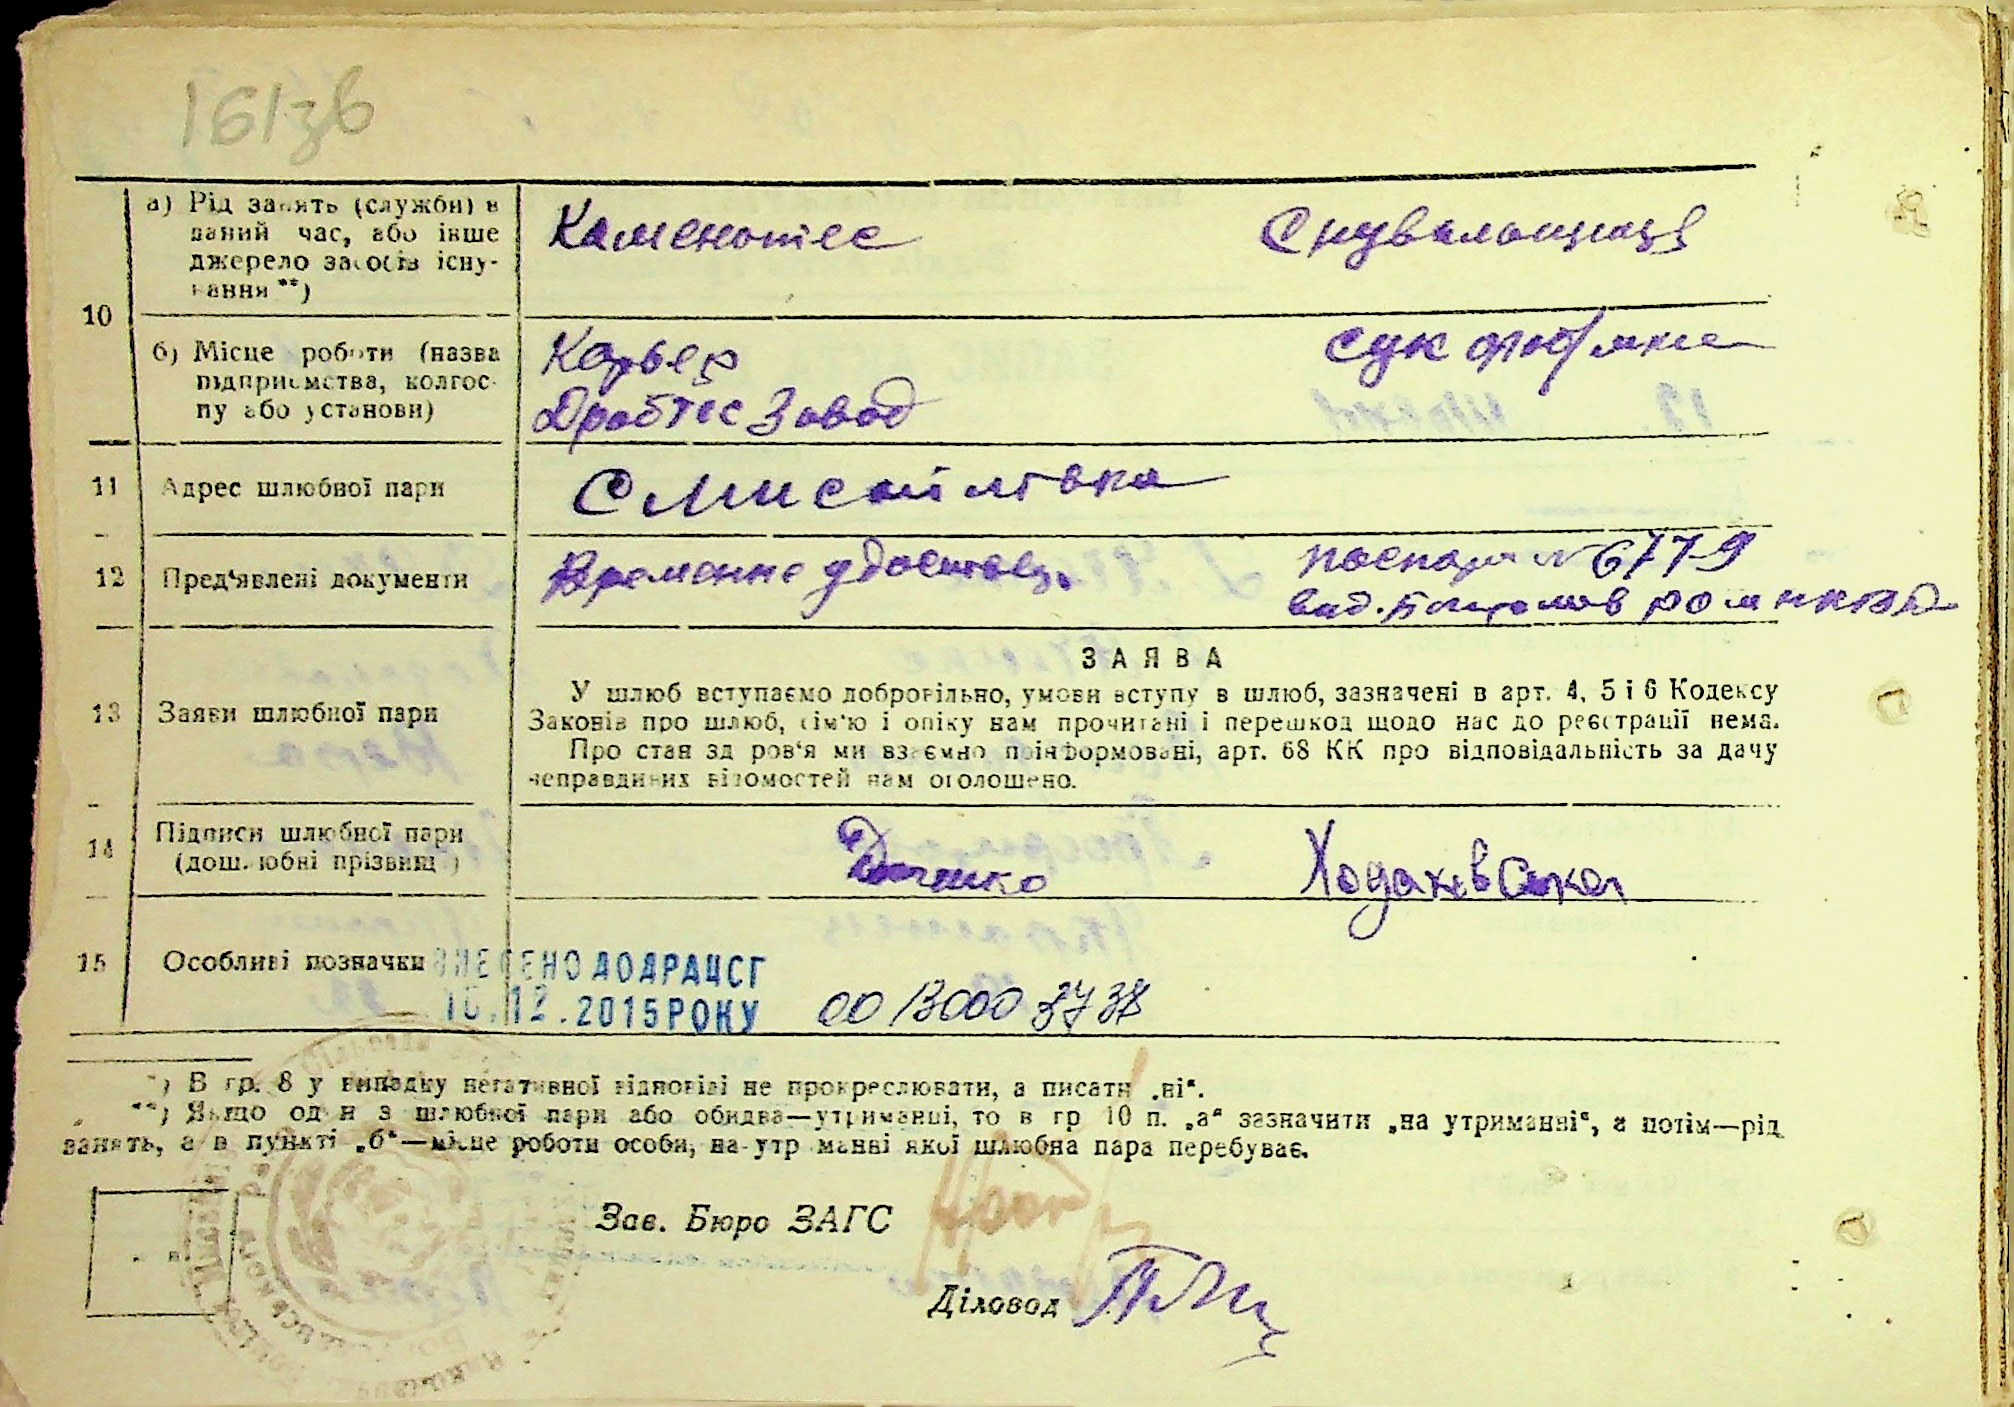 161зв
а) Рід занять (служби) в Каменотес Снувальщиця
даний час, або інше
джерело засобів існу-
вання **)
10
б) Місце роботи (назва Карьер Сук фабрика
підприємства, колгос-
пу або установи) Завод
11 Адрес шлюбної пари С Мисайлівка
12 Пред'явлені документи Временне удостовер. паспорт № 6779
вид.
З А Я В А
13 Заяви шлюбної пари У шлюб вступаємо добровільно, умови вступу в шлюб, зазначені в арт. 4, 5 і 6 Кодексу
Законів про шлюб, сім'ю і опіку нам прочитані і перешкод щодо нас до реєстрації нема.
Про стан здоров'я ми взаємно поінформовані, арт. 68 КК про відповідальність за дачу
неправдивих відомостей нам оголошено.
14 Підписи шлюбної пари Ходаковська
(дошлюбні прізвища)
15 Особливі позначки ВНЕСЕНО ДО ДРАЦСГ
10.12.2015 РОКУ 00130003738
*) В гр. 8 у випадку негативної відповіді не прокреслювати, а писати „ні“.
**) Якщо один з шлюбної пари або обидва—утриманці, то в гр 10 п. „а“ зазначити „на утриманні“, а потім—рід
занять, а в пункті „б“—місце роботи особи, на утриманні якої шлюбна пара перебуває.
Зав. Бюро ЗАГС
Діловод